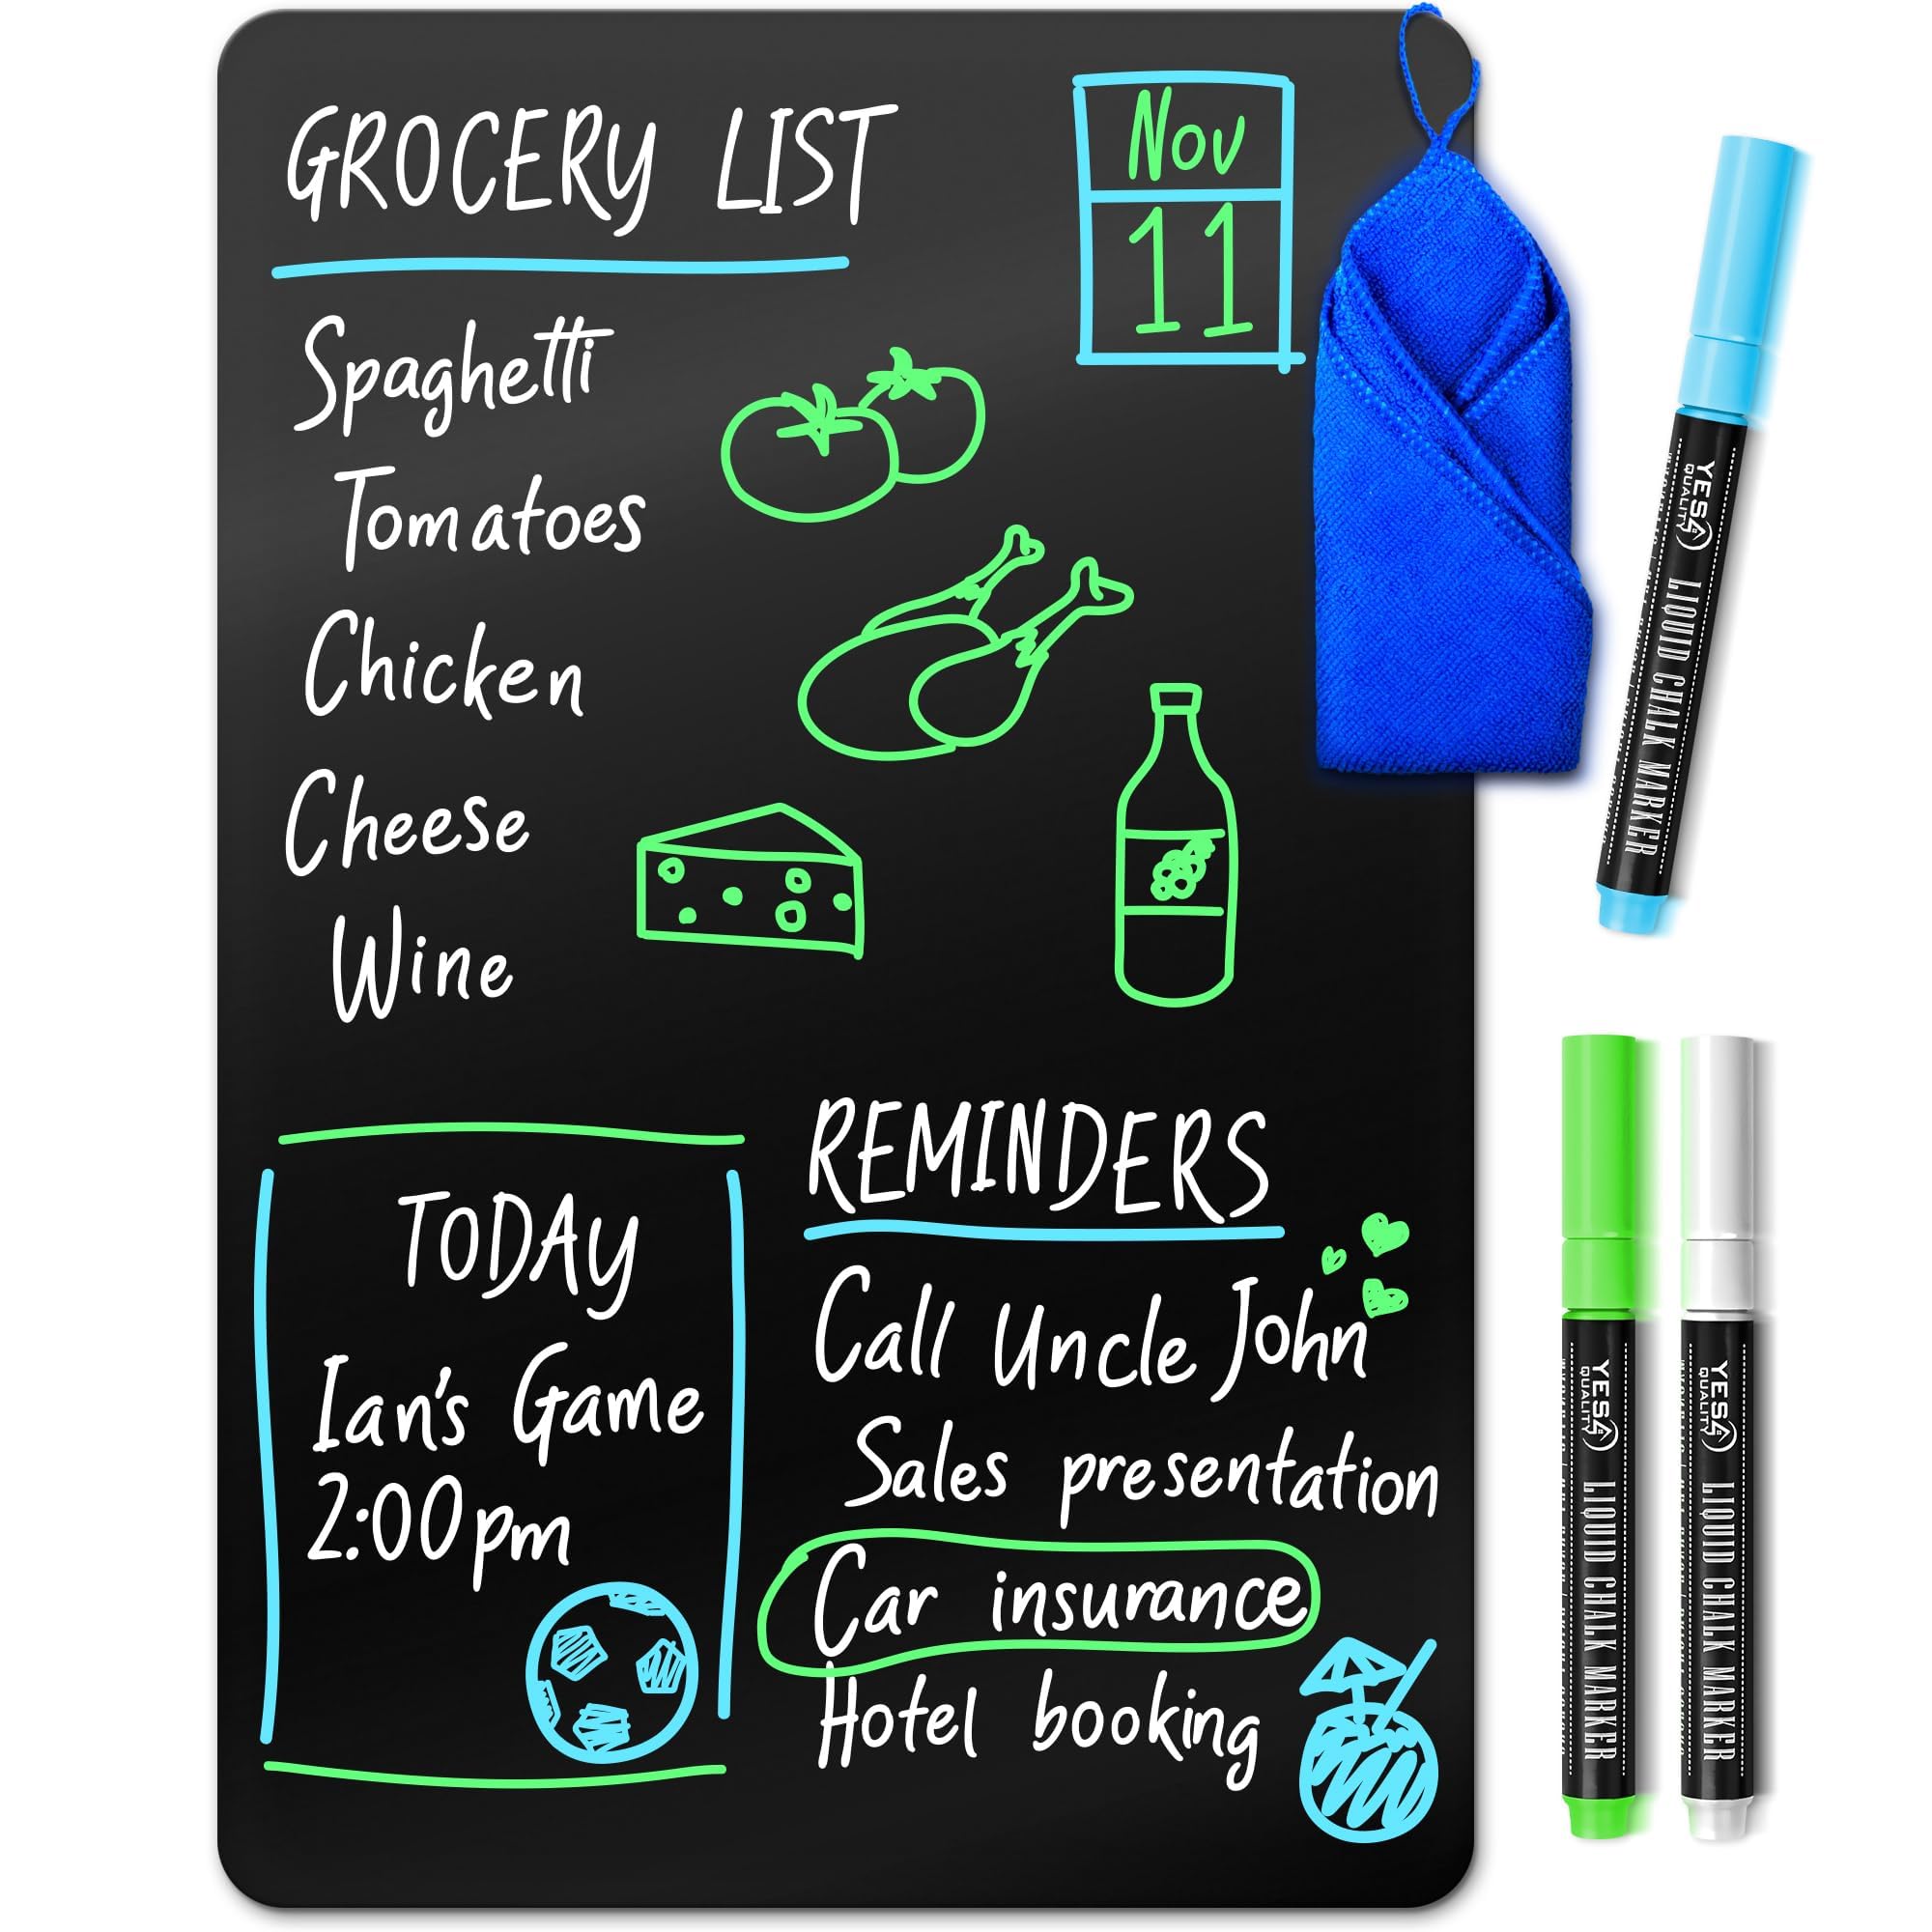 GROCERY LIST
Nov
11
Spaghetti
Tomatoes
Chicken
Cheese
Wine
TODAY
Ian's Game
2:00pm
REMINDERS
Call Uncle John
Sales presentation
Car insurance
Hotel booking
YESA
QUALITY
LIQUID CHALK MARKER
YESA
QUALITY
LIQUID CHALK MARKER
YESA
QUALITY
LIQUID CHALK MARKER